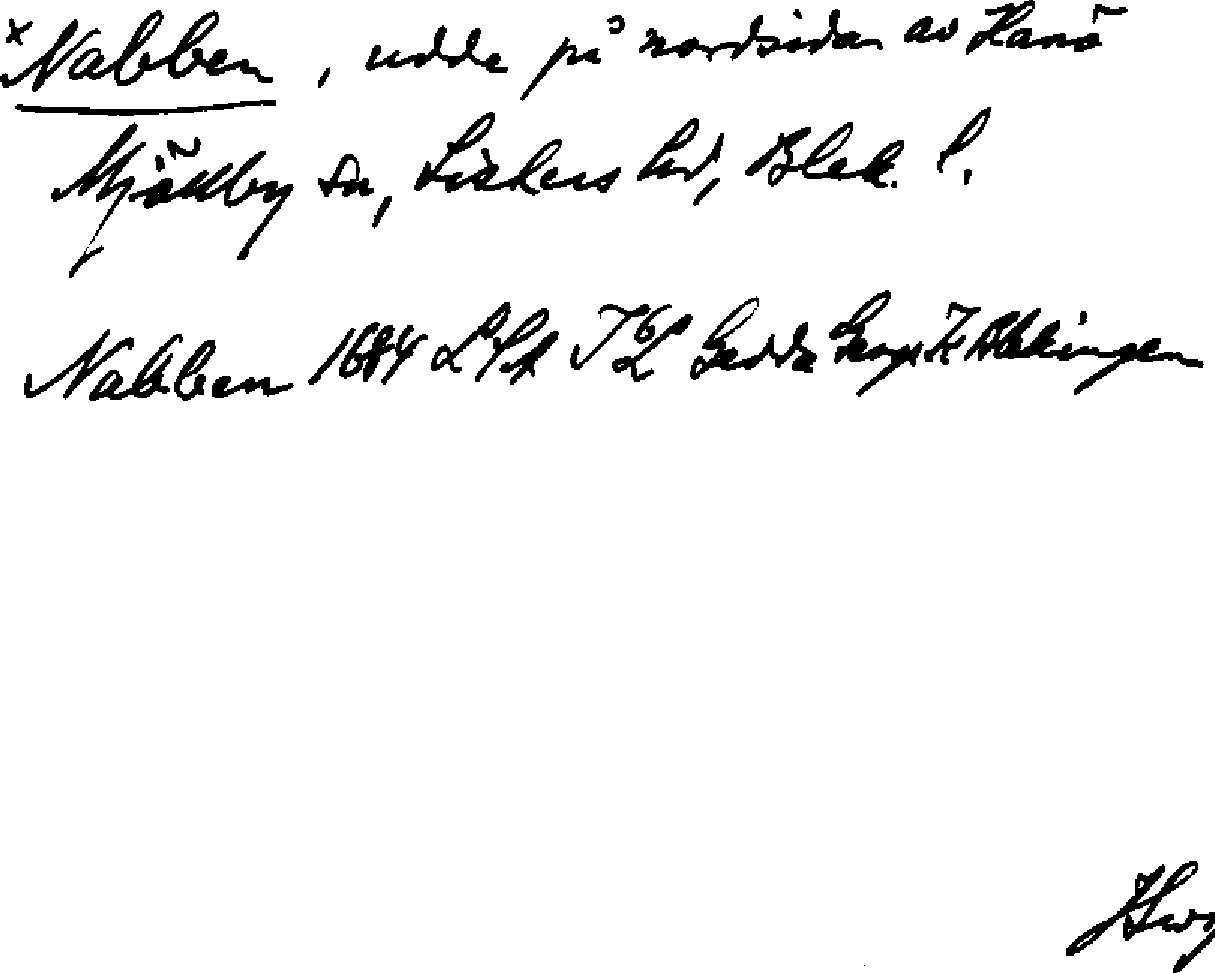 × Nabben, udde på nordsidan av Hanö
Mjällby sn, Listers hd, Blek. l.
Nabben 1684 Gedda Blekingen